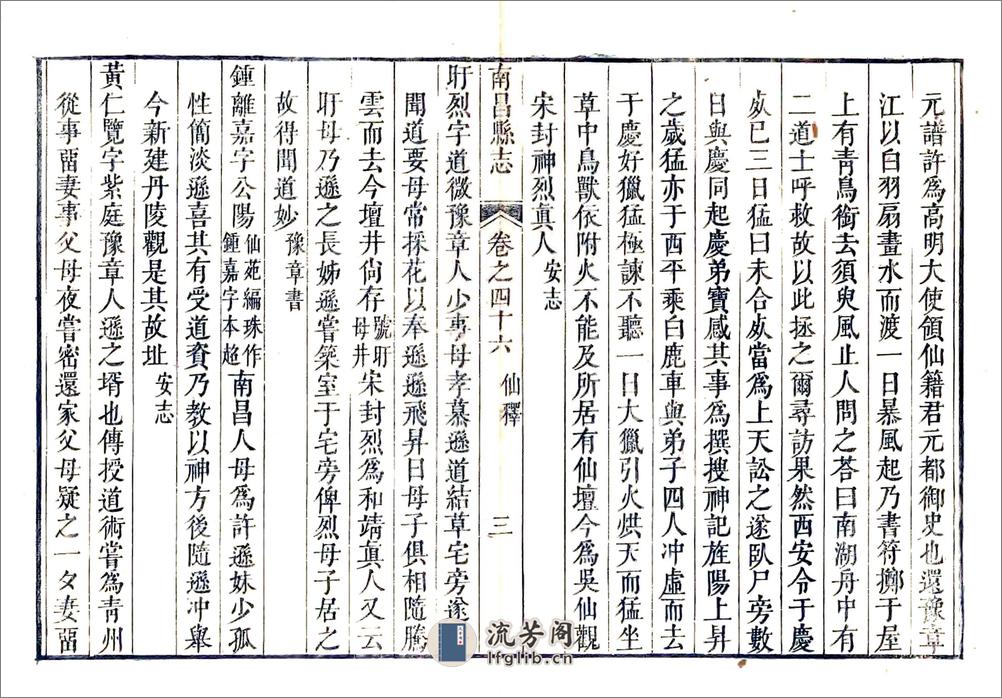 元譜許爲高明大使領仙籍君元都御史也還豫章
江以白羽扇畫水而渡一日暴風起乃書符擲于屋
上有靑鳥銜去須臾風止人問之荅曰南湖舟中有
二道士呼救故以此拯之爾尋訪果然西安令于慶
死已三日猛曰未合死當爲上天訟之遂臥尸旁數
日與慶同起慶弟寶感其事爲撰搜神記旌陽上昇
之歲猛亦于西平乘白鹿車與弟子四人冲虛而去
于慶好獵猛極諫不聽一日大獵引火烘天而猛坐
草中鳥獸依附火不能及所居有仙壇今爲吳仙觀
宋封神烈眞人安志
南昌縣志 卷之四十六 仙釋 三
盱烈字道微豫章人少事母孝慕遜道結草宅旁遂
聞道要母常採花以奉遜遜飛昇日母子俱相隨騰
雲而去今壇井尙存號盱母井宋封烈爲和靖眞人又云
盱母乃遜之長姊遜嘗築室于宅旁俾烈母子居之
故得聞道妙豫章書
鍾離嘉字公陽仙苑編珠作鍾嘉字本超南昌人母爲許遜妹少孤
性簡淡遜喜其有受道資乃教以神方後隨遜冲舉
今新建丹陵觀是其故址安志
黃仁覽字紫庭豫章人遜之壻也傳授道術嘗爲靑州
從事畱妻事父母夜嘗密還家父母疑之一夕妻畱
流芳阁
lfglib.cn